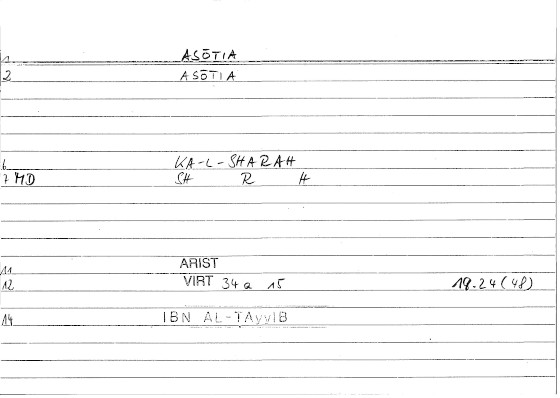 1 ASŌTIA
2 ASŌTIA
6 KA-L-SHARAH
7 MD SH R H
11 ARIST
12 VIRT 34a 15 19.24 (48)
14 IBN AL-TAyyIB